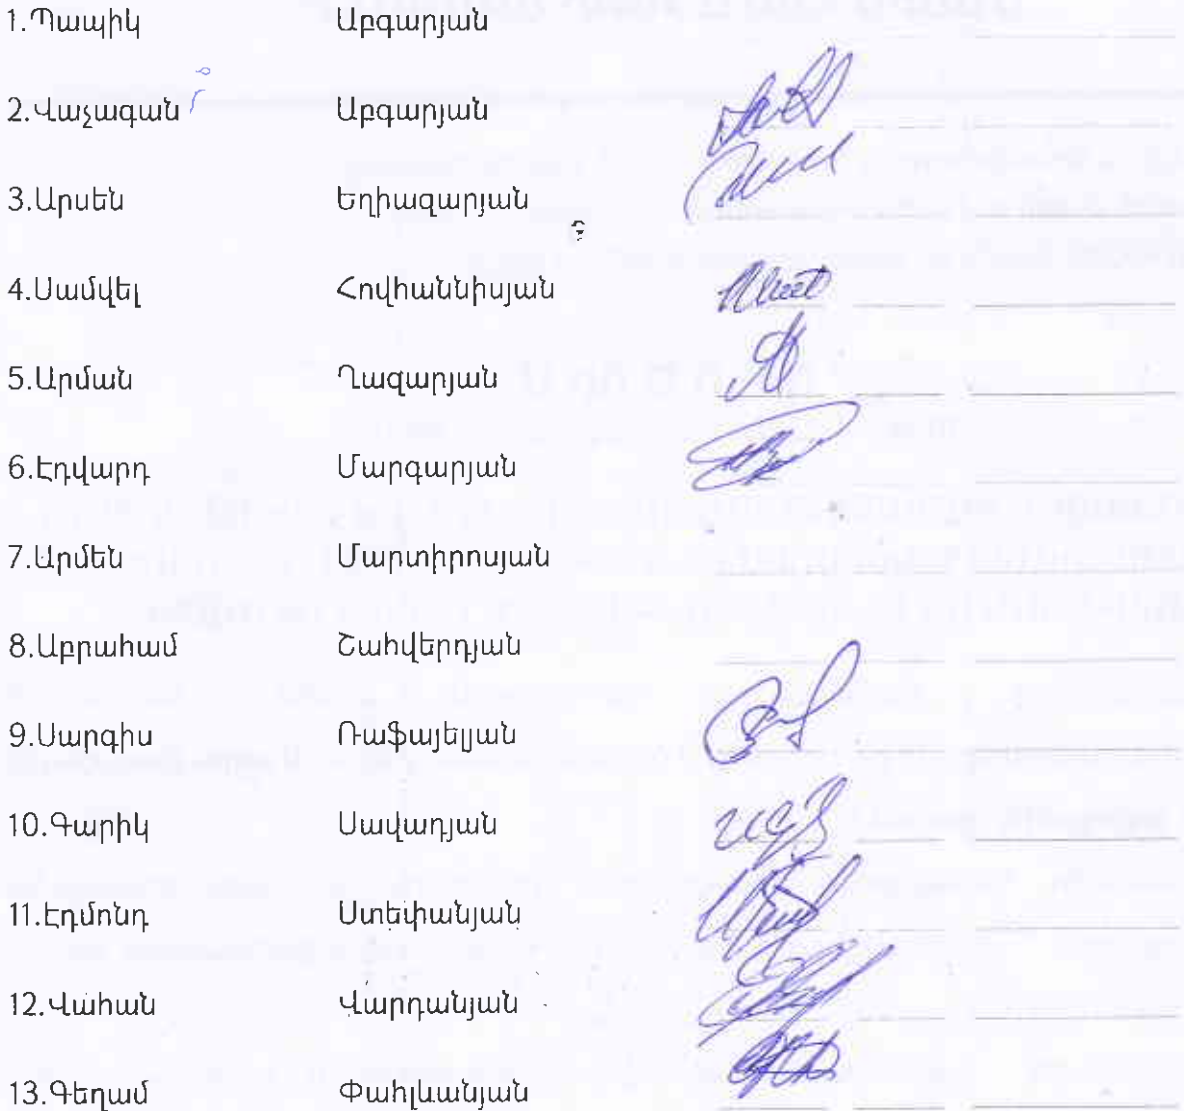 1.Պապիկ Աբգարյան
2.Վաչագան Աբգարյան
3.Արսեն Եղիազարյան
4.Սամվել Հովհաննիսյան
5.Արման Ղազարյան
6.Էդվարդ Մարգարյան
7.Արմեն Մարտիրոսյան
8.Աբրահամ Շահվերդյան
9.Սարգիս Ռաֆայելյան
10.Գարիկ Սավադյան
11.Էդմոնդ Ստեփանյան
12.Վահան Վարդանյան
13.Գեղամ Փահլևանյան